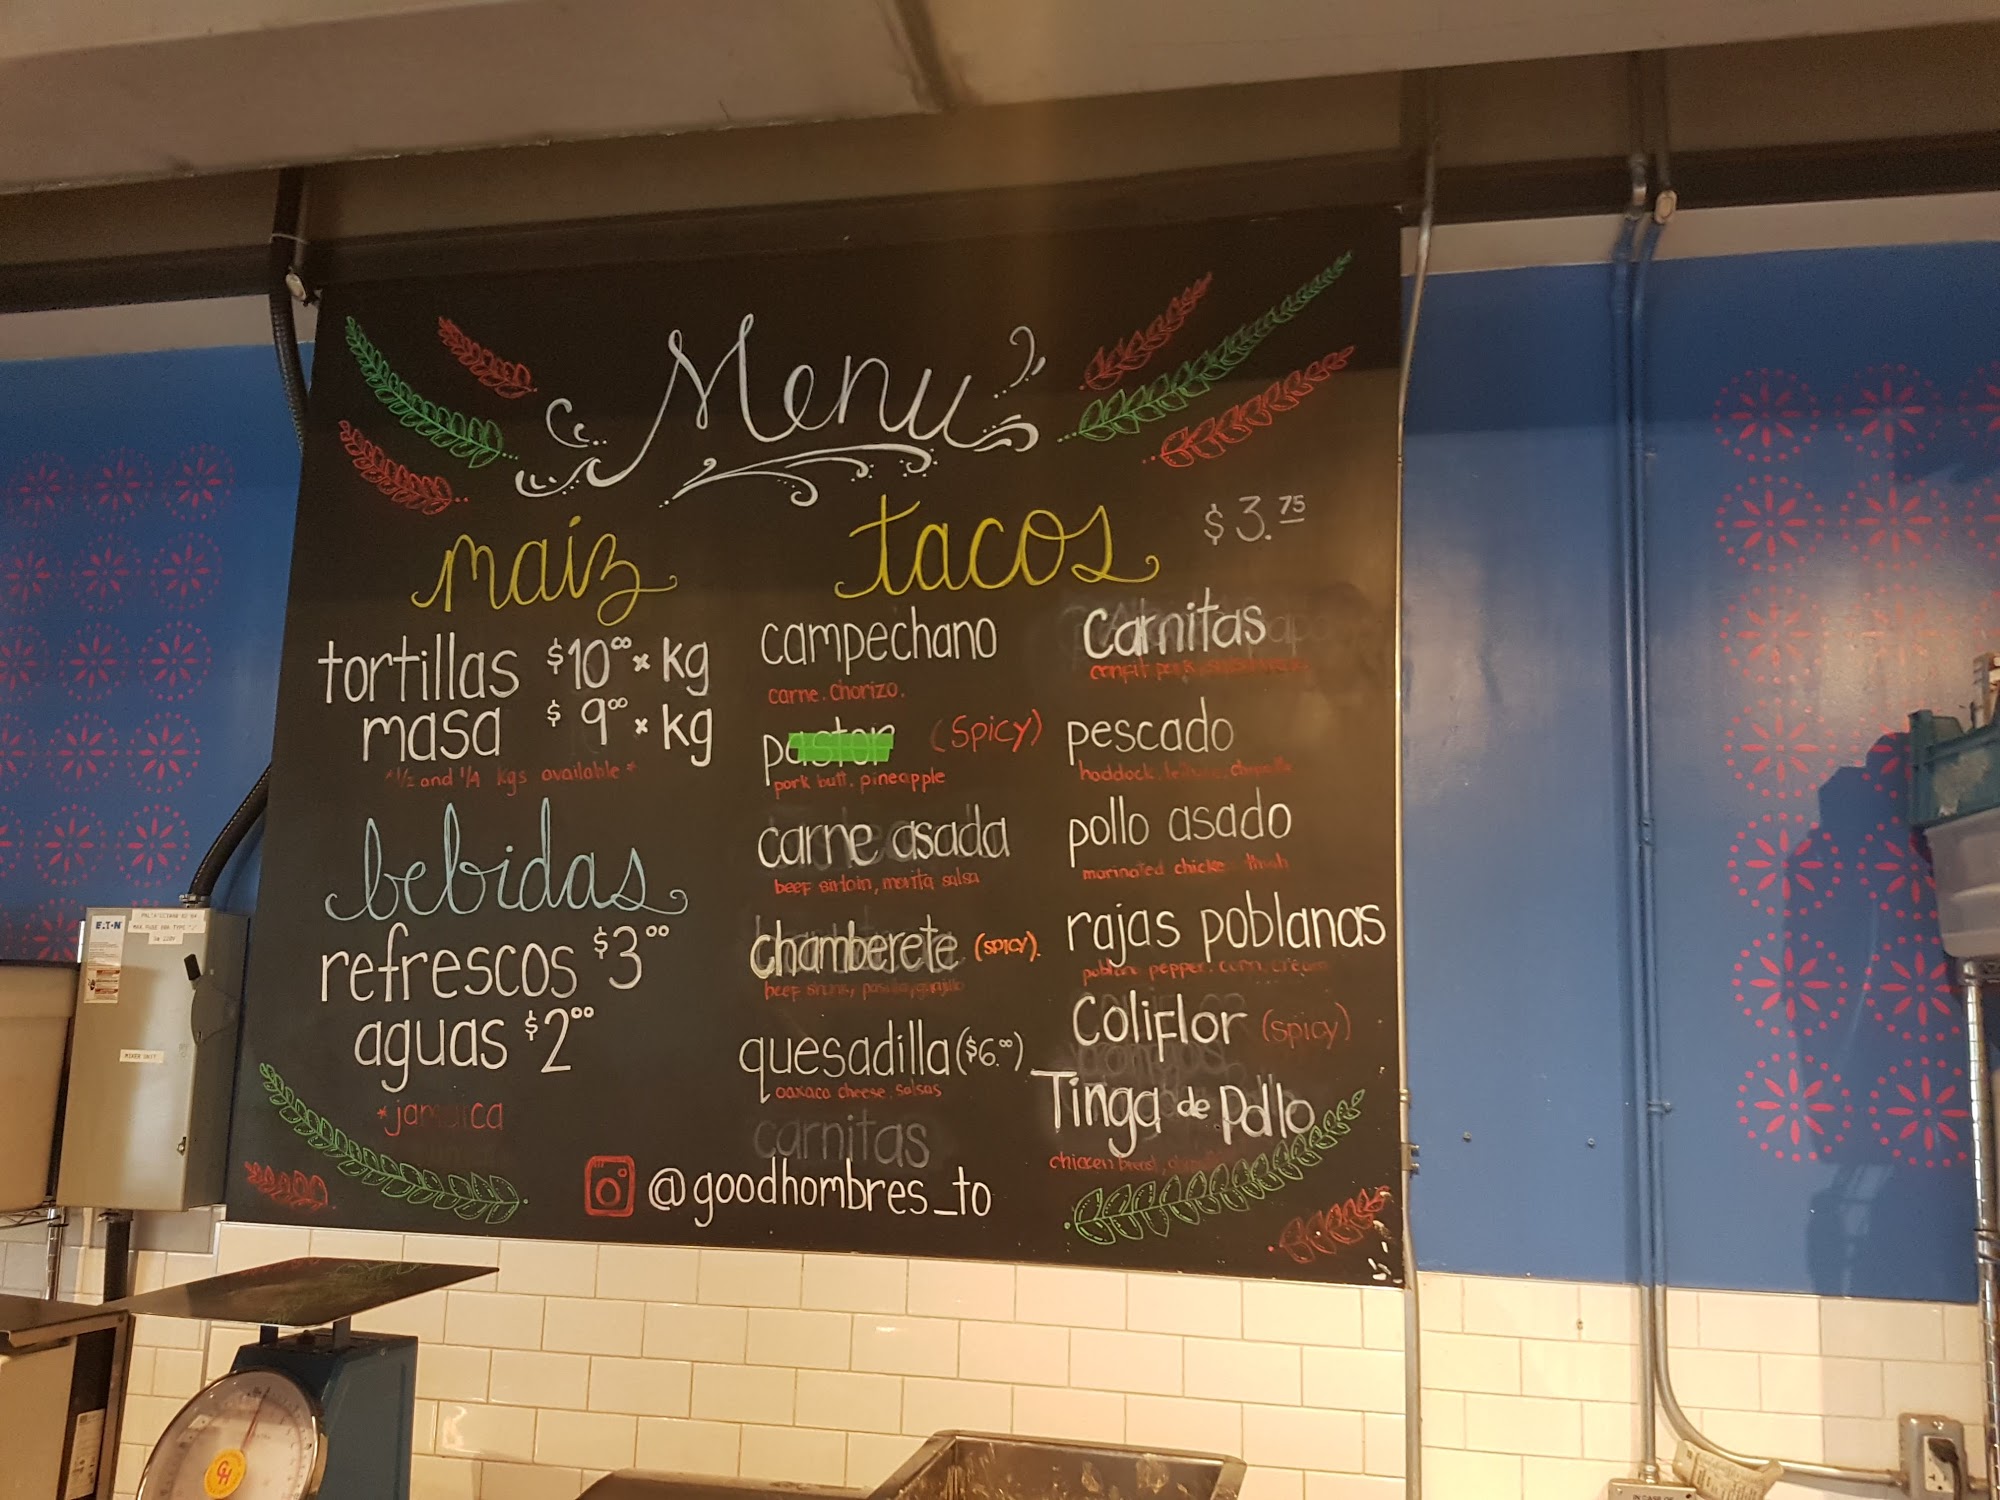 Menu
maiz
tortillas $10.00 x kg
masa $9.00 x kg
*1/2 and 1/4 kgs available*
bebidas
refrescos $3.00
aguas $2.00
*jamaica
tacos $3.75
campechano
carne. chorizo.
pastor (Spicy)
pork butt, pineapple
carne asada
beef sirloin, morita salsa
chamberete (SPICY).
beef
quesadilla ($6.00)
oaxaca cheese, salsas
carnitas
carnitas
confit pork
pescado
haddock
pollo asado
marinated chicken thigh
rajas poblanas
pepper, corn, cream
Coliflor (spicy)
Tinga de pollo
chicken breast
@goodhombres_to
EATON
MIXER UNIT